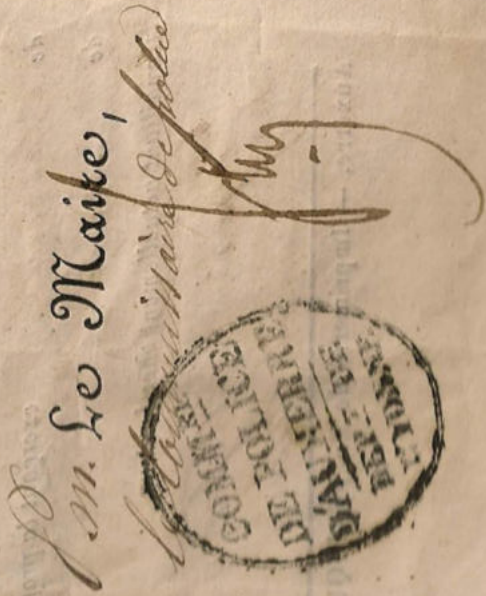 Pr m. Le Maire,
le Commissaire de police
COMMRE
DE POLICE
D'AUXERRE
DEPT DE
L'YONNE